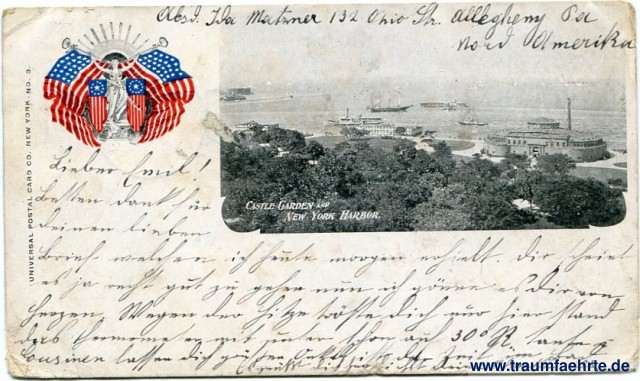 Absd. Ida Matzner 132 Ohio Str. Allegheny Pa
Nord Amerika
UNIVERSAL POSTAL CARD CO. NEW YORK. NO. 3.
CASTLE GARDEN AND
NEW YORK HARBOR.
Lieber Emil!
Besten Dank für
deinen lieben
Brief welchen ich heute morgen erhielt. Dir scheint
es ja recht gut zu gehen nun ich gönne es dir von
Herzen. Wegen der Hitze tröste dich nur hier stand
das mit unter schon auf 30° R.
Cousinen lassen dich grüßen
www.traumfaehrte.de